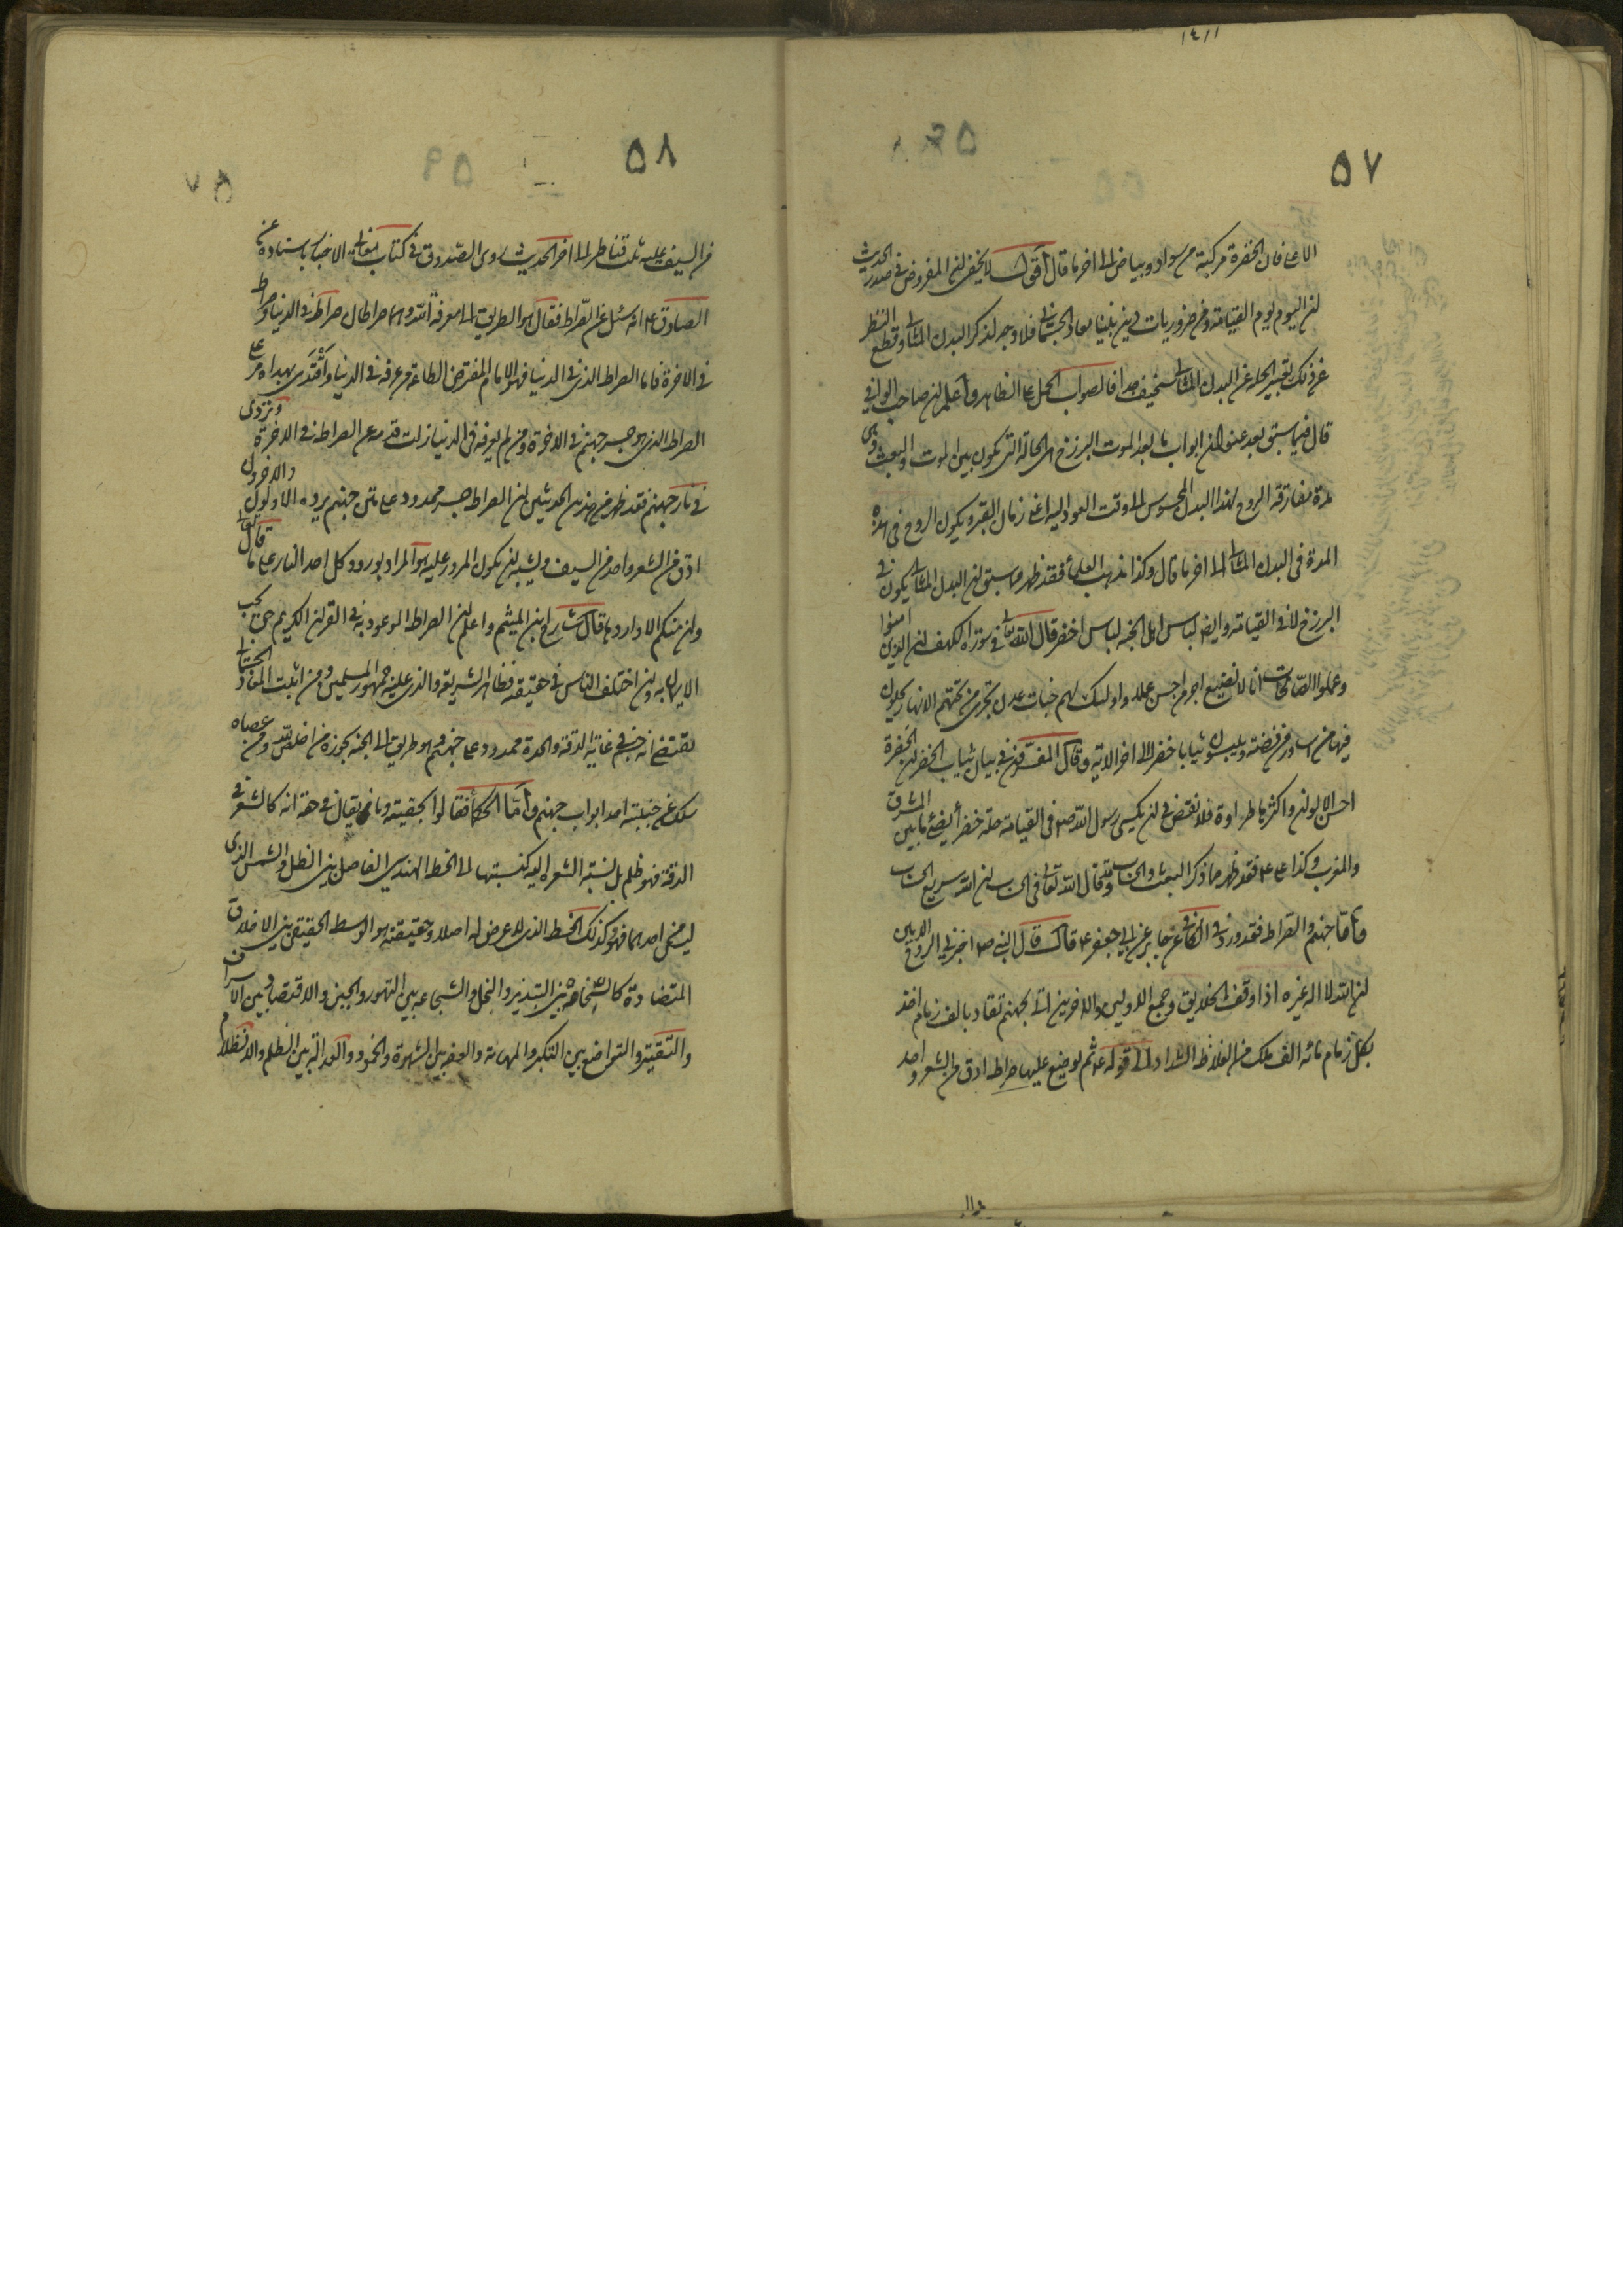 ٥٧
الاعلى فان الخضرة مركبة من سواد وبياض الى اخر ما قال اقول لا يخفى ان المفروض فى صدر الحديث
ان اليوم يوم القيامة ومن ضروريات دين نبينا معاد الجسمانى فلا وجه لذكر البدن المثالى وقطع النظر
عن ذلك تعبير الحلة عن البدن المثالى سخيف جدا فالصواب الحمل على الظاهر واعلم ان صاحب الوافى
قال فيما سبق بعد عنوان ابواب ما بعد الموت البرزخ هى الحالة التى تكون بين الموت والبعث وهى
مدة مفارقة الروح لهذا البدن المحسوس الى وقت العود اليه اعنى زمان القبر ويكون الروح فى هذه
المدة فى البدن المثالى الى اخر ما قال وكذا مذهب العلماء فقد ظهر مما سبق ان البدن المثالى يكون فى
البرزخ لا فى القيامة وايضا لباس اهل الجنة لباس اخضر قال الله تعالى فى سورة الكهف ان الذين امنوا
وعملوا الصالحات انا لا نضيع اجر من احسن عملا اولئك لهم جنات عدن تجرى من تحتهم الانهار يحلون
فيها من اساور من فضة ويلبسون ثيابا خضرا الى اخر الاية وقال المفسرون فى بيان ثياب الخضر ان الخضرة
احسن الالوان واكثرها طراوة فلا نقض فى ان يكسى رسول الله ص فى القيامة حلة خضراء يضئ ما بين المشرق
والمغرب وكذا على ع فقد ظهر مما ذكر البعث والحساب وقد قال الله تعالى فى الحساب ان الله سريع الحساب
واما جهنم والصراط فقد ورد فى الكافى عن جابر عن ابى جعفر ع قال قال النبى ص اخبرنى الروح الامين
ان الله لا اله غيره اذا وقف الخلايق وجمع الاولين والاخرين اتى بجهنم تقاد بالف زمام اخذ
بكل زمام مائة الف ملك من الغلاظ الشداد الى قوله ع ثم يوضع عليها صراط ادق من الشعر واحد
٥٨
من السيف عليه ثلث قناطر الى اخر الحديث روى الصدوق فى كتاب معانى الاخبار باسناده عن
الصادق ع انه سئل عن الصراط فقال هو الطريق الى معرفة الله وهما صراطان صراط فى الدنيا وصراط
فى الاخرة فاما الصراط الذى فى الدنيا فهو الامام المفترض الطاعة من عرفه فى الدنيا واقتدى بهداه مر على
الصراط الذى هو جسر جهنم فى الاخرة ومن لم يعرفه فى الدنيا زلت قدمه عن الصراط فى الاخرة وتردى
فى نار جهنم فقد ظهر من هذين الحديثين ان الصراط جسر ممدود على متن جهنم يرده الاولون والاخرون
ادق من الشعر واحد من السيف ويشبه ان يكون المرور عليه هو المراد بورود كل احد النار على ما قال تعالى
وان منكم الا واردها قال شارح ابن الميثم واعلم ان الصراط الموعود به فى القران الكريم حق يجب
الايمان به وان اختلف الناس فى حقيقته فظاهر الشريعة والذى عليه جمهور المسلمين ومن اثبت المعاد الجسمانى
يقتضى انه جسم فى غاية الدقة والحدة ممدود على جهنم وهو طريق الى الجنة يجوزه من اخلص لله ومن عصاه
سلك عن جنبتيه احد ابواب جهنم واما الحكماء فقالوا بحقيته وما يقال فى حقه انه كالشعر فى
الدقة فهو ظلم بل نسبة الشعرة اليه كنسبتها الى الخط الهندسى الفاصل بين الظل والشمس الذى
ليس من احدهما فهو كذلك الخط الذى لا عرض له اصلا وحقيقته هو الوسط الحقيقى بين الاخلاق
المتضادة كالسخاوة بين التبذير والبخل والشجاعة بين التهور والجبن والاقتصاد بين الاسراف
والتقتير والتواضع بين التكبر والمهانة والعفة بين الشهوة والخمود والعدالة بين الظلم والانظلام